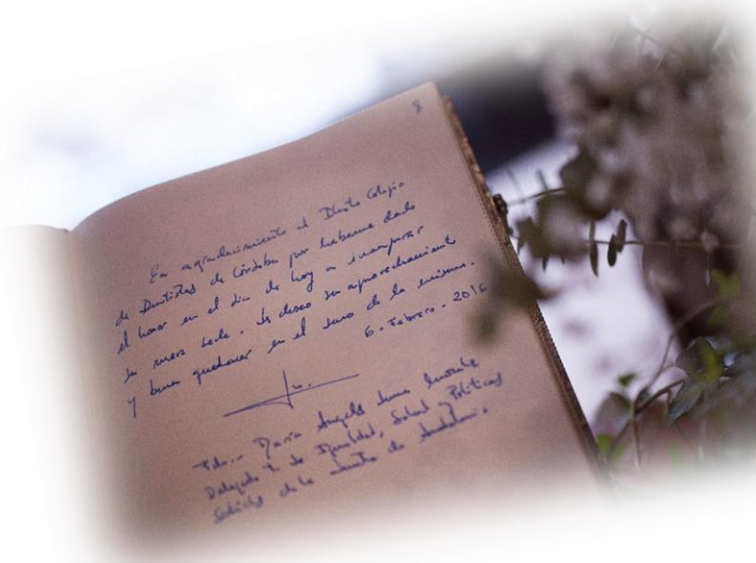 8
En agradecimiento al Ilustre Colegio
de Dentistas de Córdoba por haberme dado
el honor en el día de hoy a inaugurar
su nueva sede. Les deseo su aprovechamiento
y buen quehacer en el seno de la misma.
6. Febrero. 2016
Fdo.. María Angeles Luna
Delegada T. de Igualdad, Salud y Políticas
Sociales de la Junta de Andalucía.